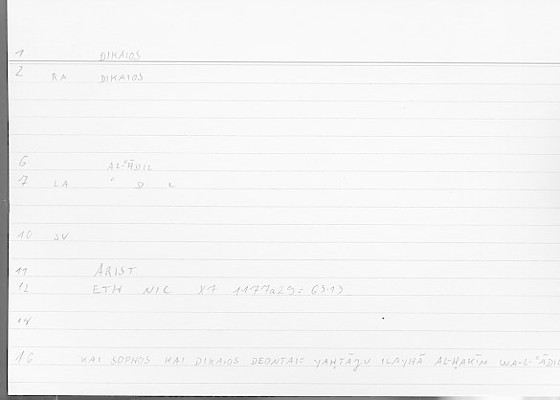 1 DIKAIOS
2 RA DIKAIOS
6 AL-ʿĀDIL
7 LA ʿ D L
10 SV
11 ARIST
12 ETH NIC X7 1177a29 = 6313
14
16 KAI SOPHOS KAI DIKAIOS DEONTAI = YAḤTĀǦU ILAYHĀ AL-ḤAKĪM WA-L-ʿĀDIL